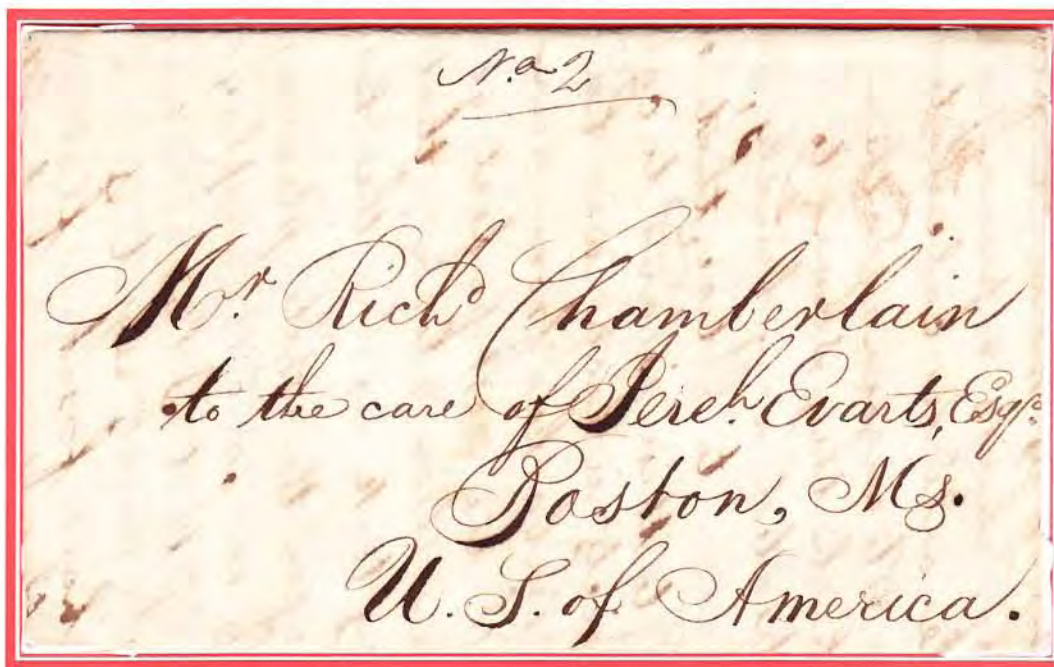 No. 2
Mr. Richd Chamberlain
to the care of Jereh. Evarts, Esqr.
Boston, Ms.
U. S. of America.